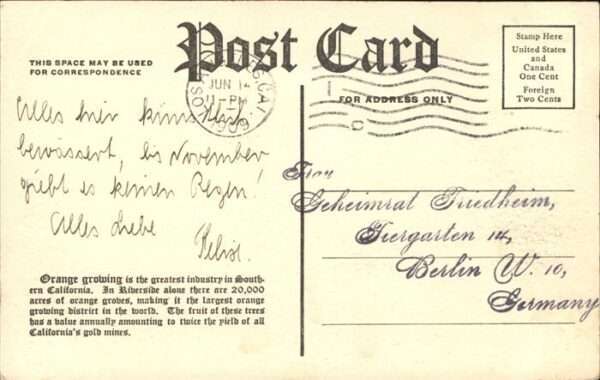 Post Card
THIS SPACE MAY BE USED
FOR CORRESPONDENCE
FOR ADDRESS ONLY
Stamp Here
United States
and
Canada
One Cent
Foreign
Two Cents
JUN 14
11-PM
1909
CAL.
Alles hier künstlich
bewässert, bis November
giebt es keinen Regen!
Alles Liebe
Frau
Geheimrat Friedheim,
Tiergarten 14,
Berlin W. 10,
Germany
Orange growing is the greatest industry in South-
ern California. In Riverside alone there are 20,000
acres of orange groves, making it the largest orange
growing district in the world. The fruit of these trees
has a value annually amounting to twice the yield of all
California's gold mines.